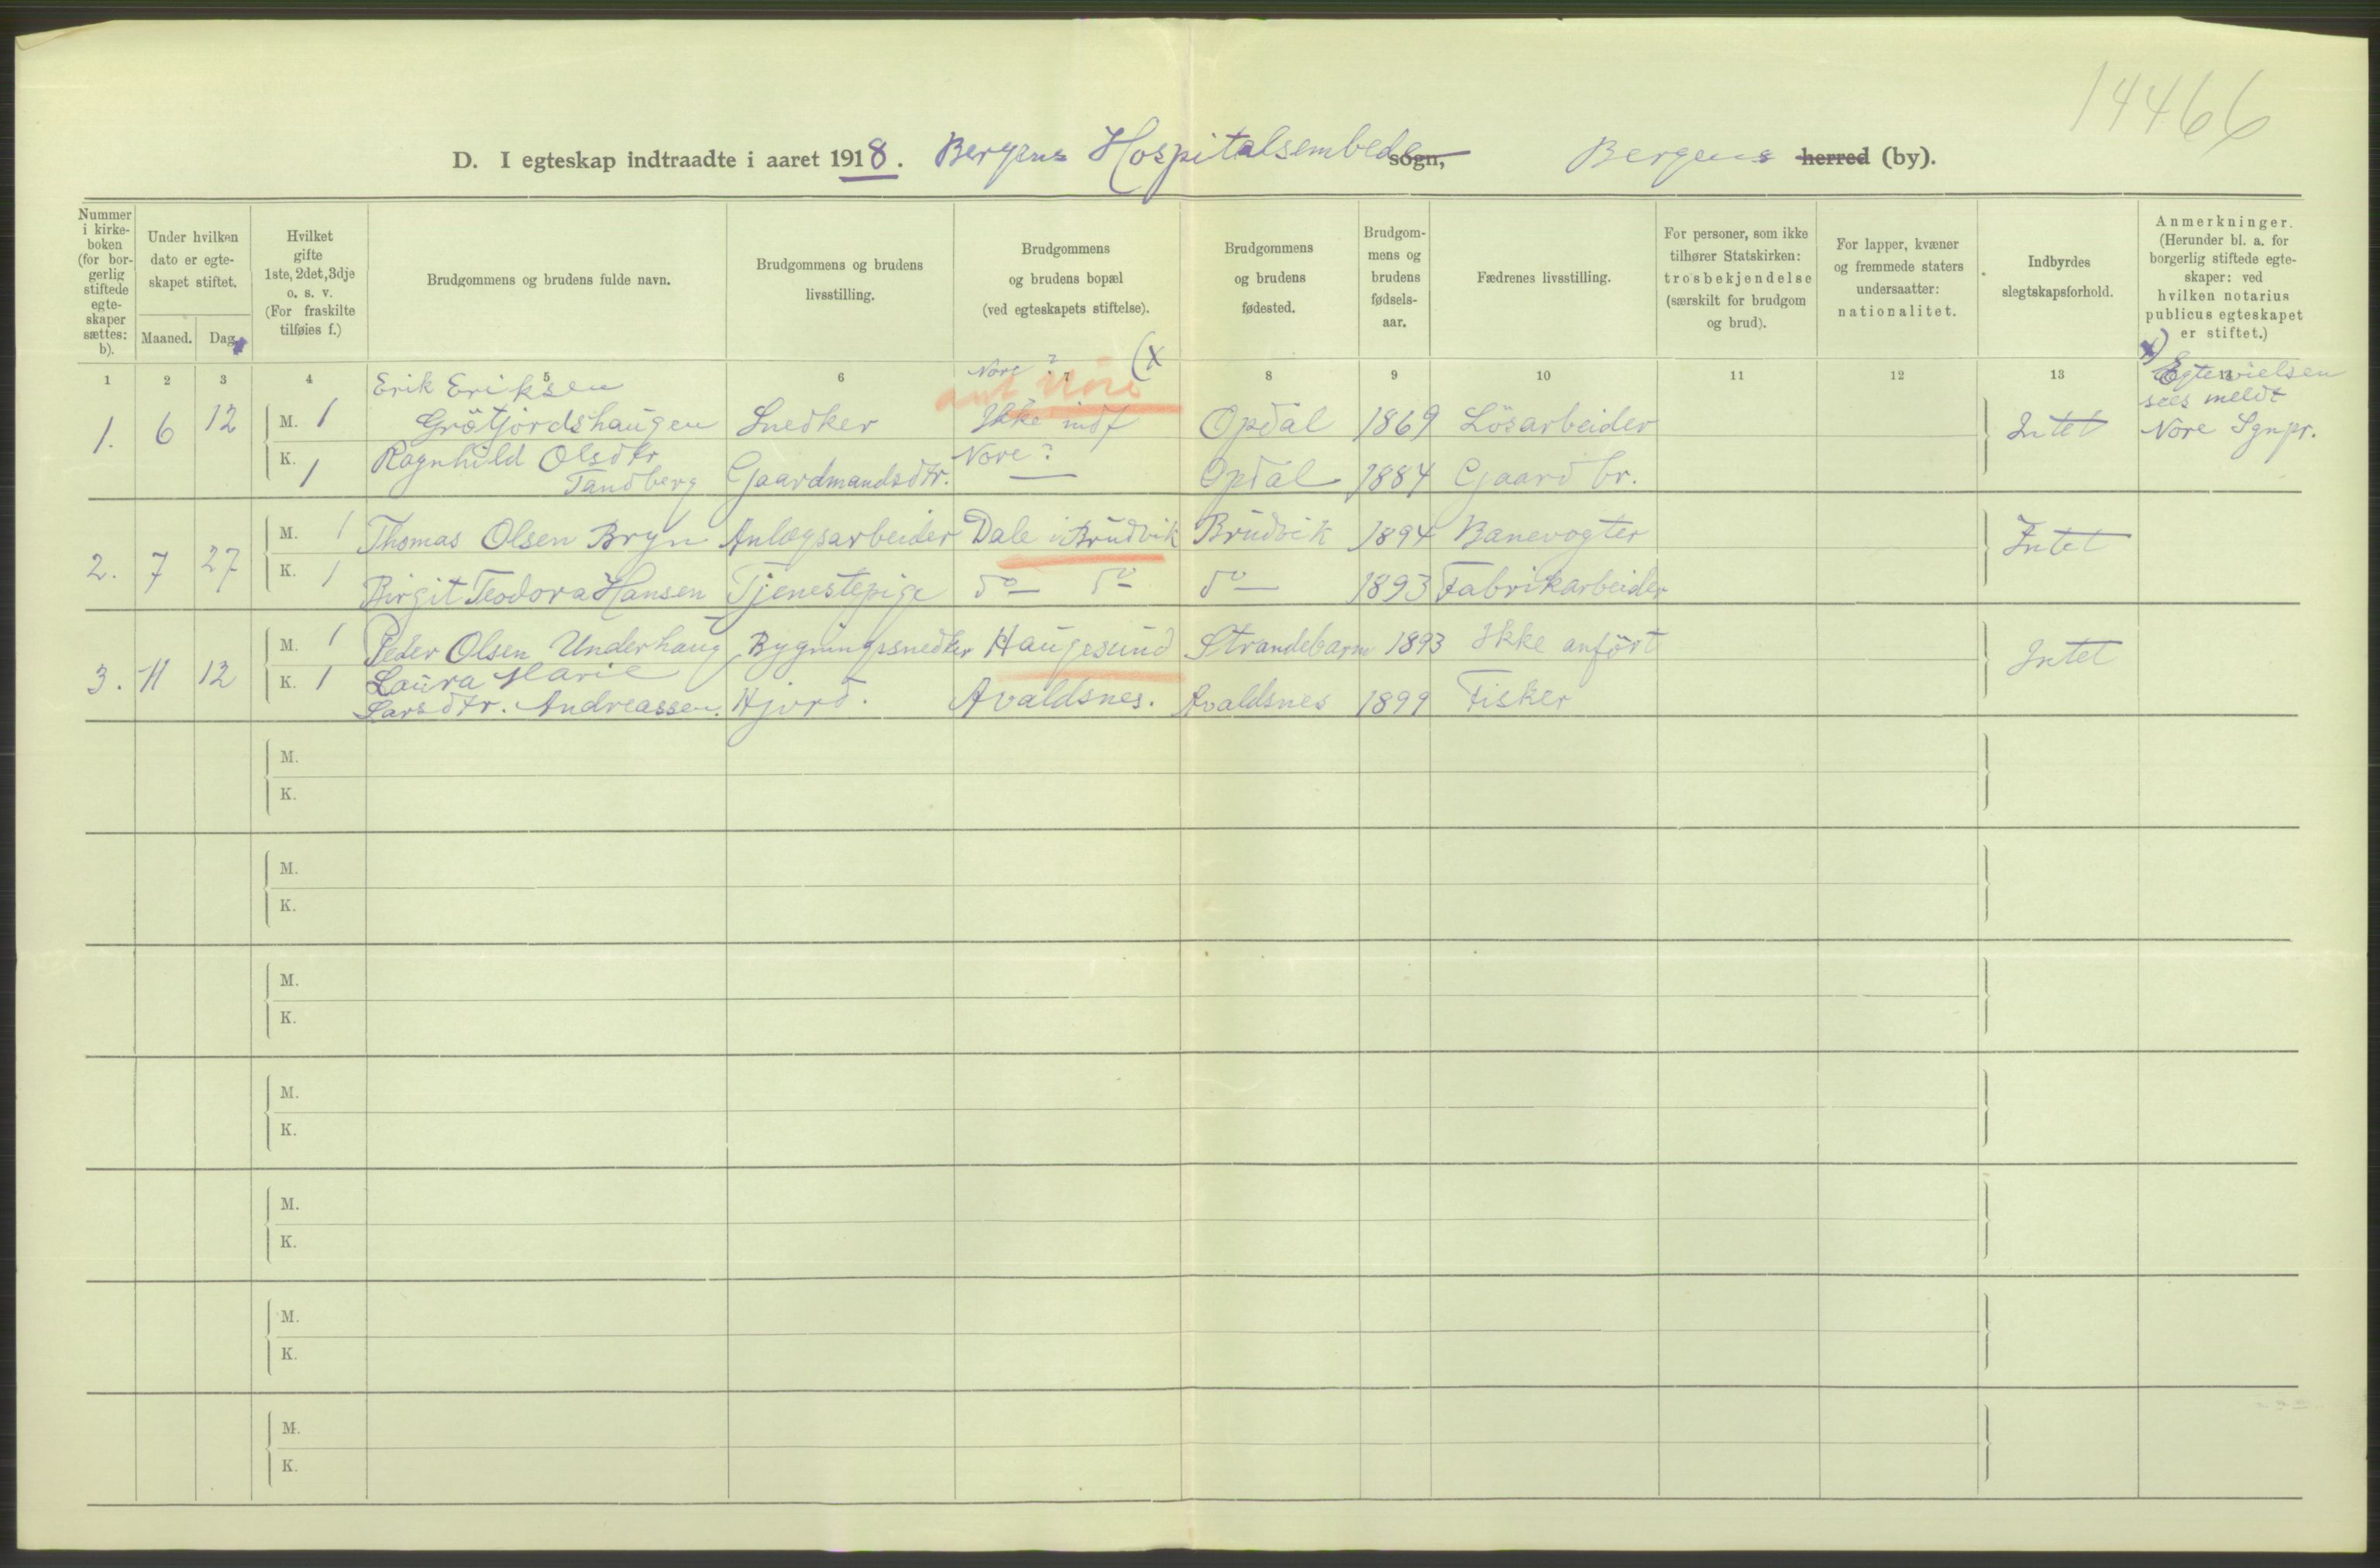 14466
D. I egteskap indtraadte i aaret 1918. Bergens Hospitalsembede sogn, Bergens herred (by).
Nummer i kirkeboken (for borgerlig stiftede egteskaper sættes: b).
Under hvilken dato er egteskapet stiftet.
Maaned. Dag.
Hvilket gifte 1ste, 2det, 3dje o. s. v. (For fraskilte tilføies f.)
Brudgommens og brudens fulde navn.
Brudgommens og brudens livsstilling.
Brudgommens og brudens bopæl (ved egteskapets stiftelse).
Brudgommens og brudens fødested.
Brudgommens og brudens fødselsaar.
Fædrenes livsstilling.
For personer, som ikke tilhører Statskirken: trosbekjendelse (særskilt for brudgom og brud).
For lapper, kvæner og fremmede staters undersaatter: nationalitet.
Indbyrdes slegtskapsforhold.
Anmerkninger. (Herunder bl. a. for borgerlig stiftede egteskaper: ved hvilken notarius publicus egteskapet er stiftet.)
1 2 3 4 5 6 7 8 9 10 11 12 13 14
Nore ? (x
ant. Nore
x) Egtevielsen
sees meldt
Nore Sgnpr.
Erik Eriksen
1. 6 12 M. 1 Grötjordshaugen Snedker Ikke indf Opdal 1869 Lösarbeider Intet
K. 1 Ragnhild Olsdtr Nore ?
Tandberg Gaardmandsdtr. — Opdal 1884 Gaardbr.
2. 7 27 M. 1 Thomas Olsen Bryn Anlægsarbeider Dale i Brudvik Brudvik 1894 Banevogter Intet
K. 1 Birgit Teodora Hansen Tjenestepige do do do 1893 Fabrikarbeider
3. 11 12 M. 1 Peder Olsen Underhaug Bygningssnedker Haugesund Strandebarm 1893 Ikke anfört Intet
K. 1 Laura Marie
Larsdtr. Andreassen. Hjord. Avaldsnes. Avaldsnes 1899 Fisker
M.
K.
M.
K.
M.
K.
M.
K.
M.
K.
M.
K.
M.
K.